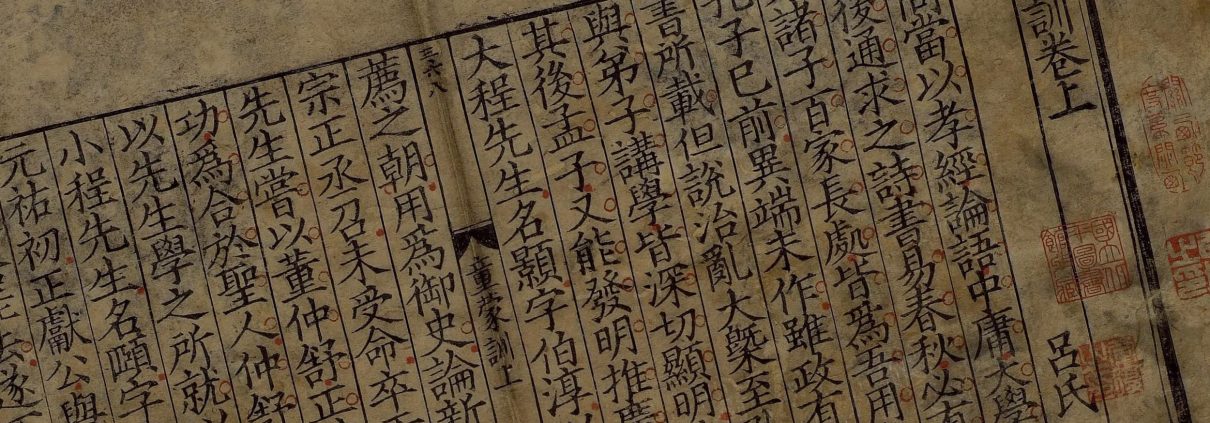 訓卷上
呂氏
當以孝經論語中庸大學
後通求之詩書易春秋必有
諸子百家長處皆爲吾用
孔子已前異端未作雖政有
書所載但說治亂大槩至
與弟子講學皆深切顯明
其後孟子又能發明推廣
大程先生名顥字伯淳
三六八
童蒙訓上
薦之朝用爲御史論新
宗正丞召未受命卒
先生嘗以董仲舒正
功爲合於聖人仲舒
以先生學之所就
小程先生名頤字
元祐初正獻公與
遂